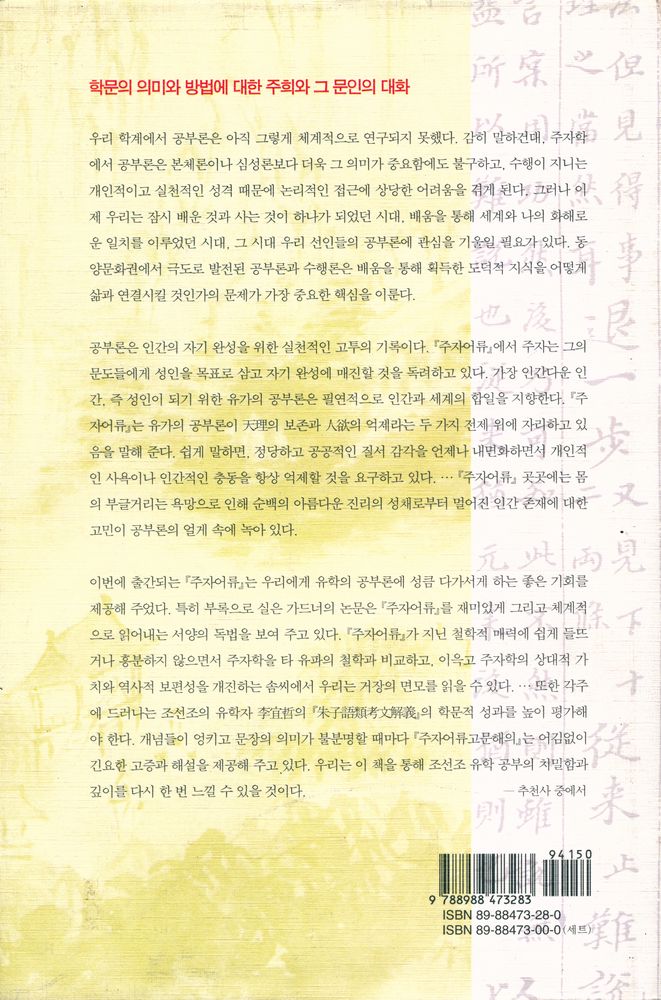 학문의 의미와 방법에 대한 주희와 그 문인의 대화
우리 학계에서 공부론은 아직 그렇게 체계적으로 연구되지 못했다. 감히 말하건대, 주자학
에서 공부론은 본체론이나 심성론보다 더욱 그 의미가 중요함에도 불구하고, 수행이 지니는
개인적이고 실천적인 성격 때문에 논리적인 접근에 상당한 어려움을 겪게 된다. 그러나 이
제 우리는 잠시 배운 것과 사는 것이 하나가 되었던 시대, 배움을 통해 세계와 나의 화해로
운 일치를 이루었던 시대, 그 시대 우리 선인들의 공부론에 관심을 기울일 필요가 있다. 동
양문화권에서 극도로 발전된 공부론과 수행론은 배움을 통해 획득한 도덕적 지식을 어떻게
삶과 연결시킬 것인가의 문제가 가장 중요한 핵심을 이룬다.
공부론은 인간의 자기 완성을 위한 실천적인 고투의 기록이다. 『주자어류』에서 주자는 그의
문도들에게 성인을 목표로 삼고 자기 완성에 매진할 것을 독려하고 있다. 가장 인간다운 인
간, 즉 성인이 되기 위한 유가의 공부론은 필연적으로 인간과 세계의 합일을 지향한다. 『주
자어류』는 유가의 공부론이 天理의 보존과 人欲의 억제라는 두 가지 전제 위에 자리하고 있
음을 말해 준다. 쉽게 말하면, 정당하고 공공적인 질서 감각을 언제나 내면화하면서 개인적
인 사욕이나 인간적인 충동을 항상 억제할 것을 요구하고 있다. … 『주자어류』 곳곳에는 몸
의 부글거리는 욕망으로 인해 순백의 아름다운 진리의 성채로부터 멀어진 인간 존재에 대한
고민이 공부론의 얼게 속에 녹아 있다.
이번에 출간되는 『주자어류』는 우리에게 유학의 공부론에 성큼 다가서게 하는 좋은 기회를
제공해 주었다. 특히 부록으로 실은 가드너의 논문은 『주자어류』를 재미있게 그리고 체계적
으로 읽어내는 서양의 독법을 보여 주고 있다. 『주자어류』가 지닌 철학적 매력에 쉽게 들뜨
거나 흥분하지 않으면서 주자학을 타 유파의 철학과 비교하고, 이윽고 주자학의 상대적 가
치와 역사적 보편성을 개진하는 솜씨에서 우리는 거장의 면모를 읽을 수 있다. … 또한 각주
에 드러나는 조선조의 유학자 李宜哲의 『朱子語類考文解義』의 학문적 성과를 높이 평가해
야 한다. 개념들이 엉키고 문장의 의미가 불분명할 때마다 『주자어류고문해의』는 어김없이
긴요한 고증과 해설을 제공해 주고 있다. 우리는 이 책을 통해 조선조 유학 공부의 치밀함과
깊이를 다시 한 번 느낄 수 있을 것이다.
— 추천사 중에서
94150
9 788988 473283
ISBN 89-88473-28-0
ISBN 89-88473-00-0 (세트)
但見得事
退一步又見
下十
從来止難